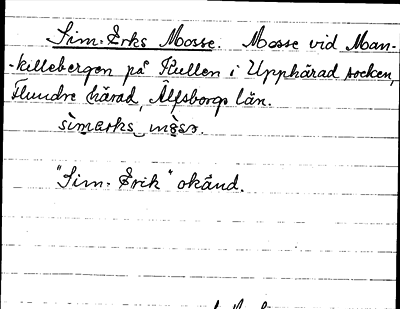 Sim-Erks Mosse. Mosse vid Man-
-killebergen på Kullen i Upphärad socken,
Flundre härad, Älfsborgs län.
sìmærks mòsn.
"Sim-Erik" okänd.